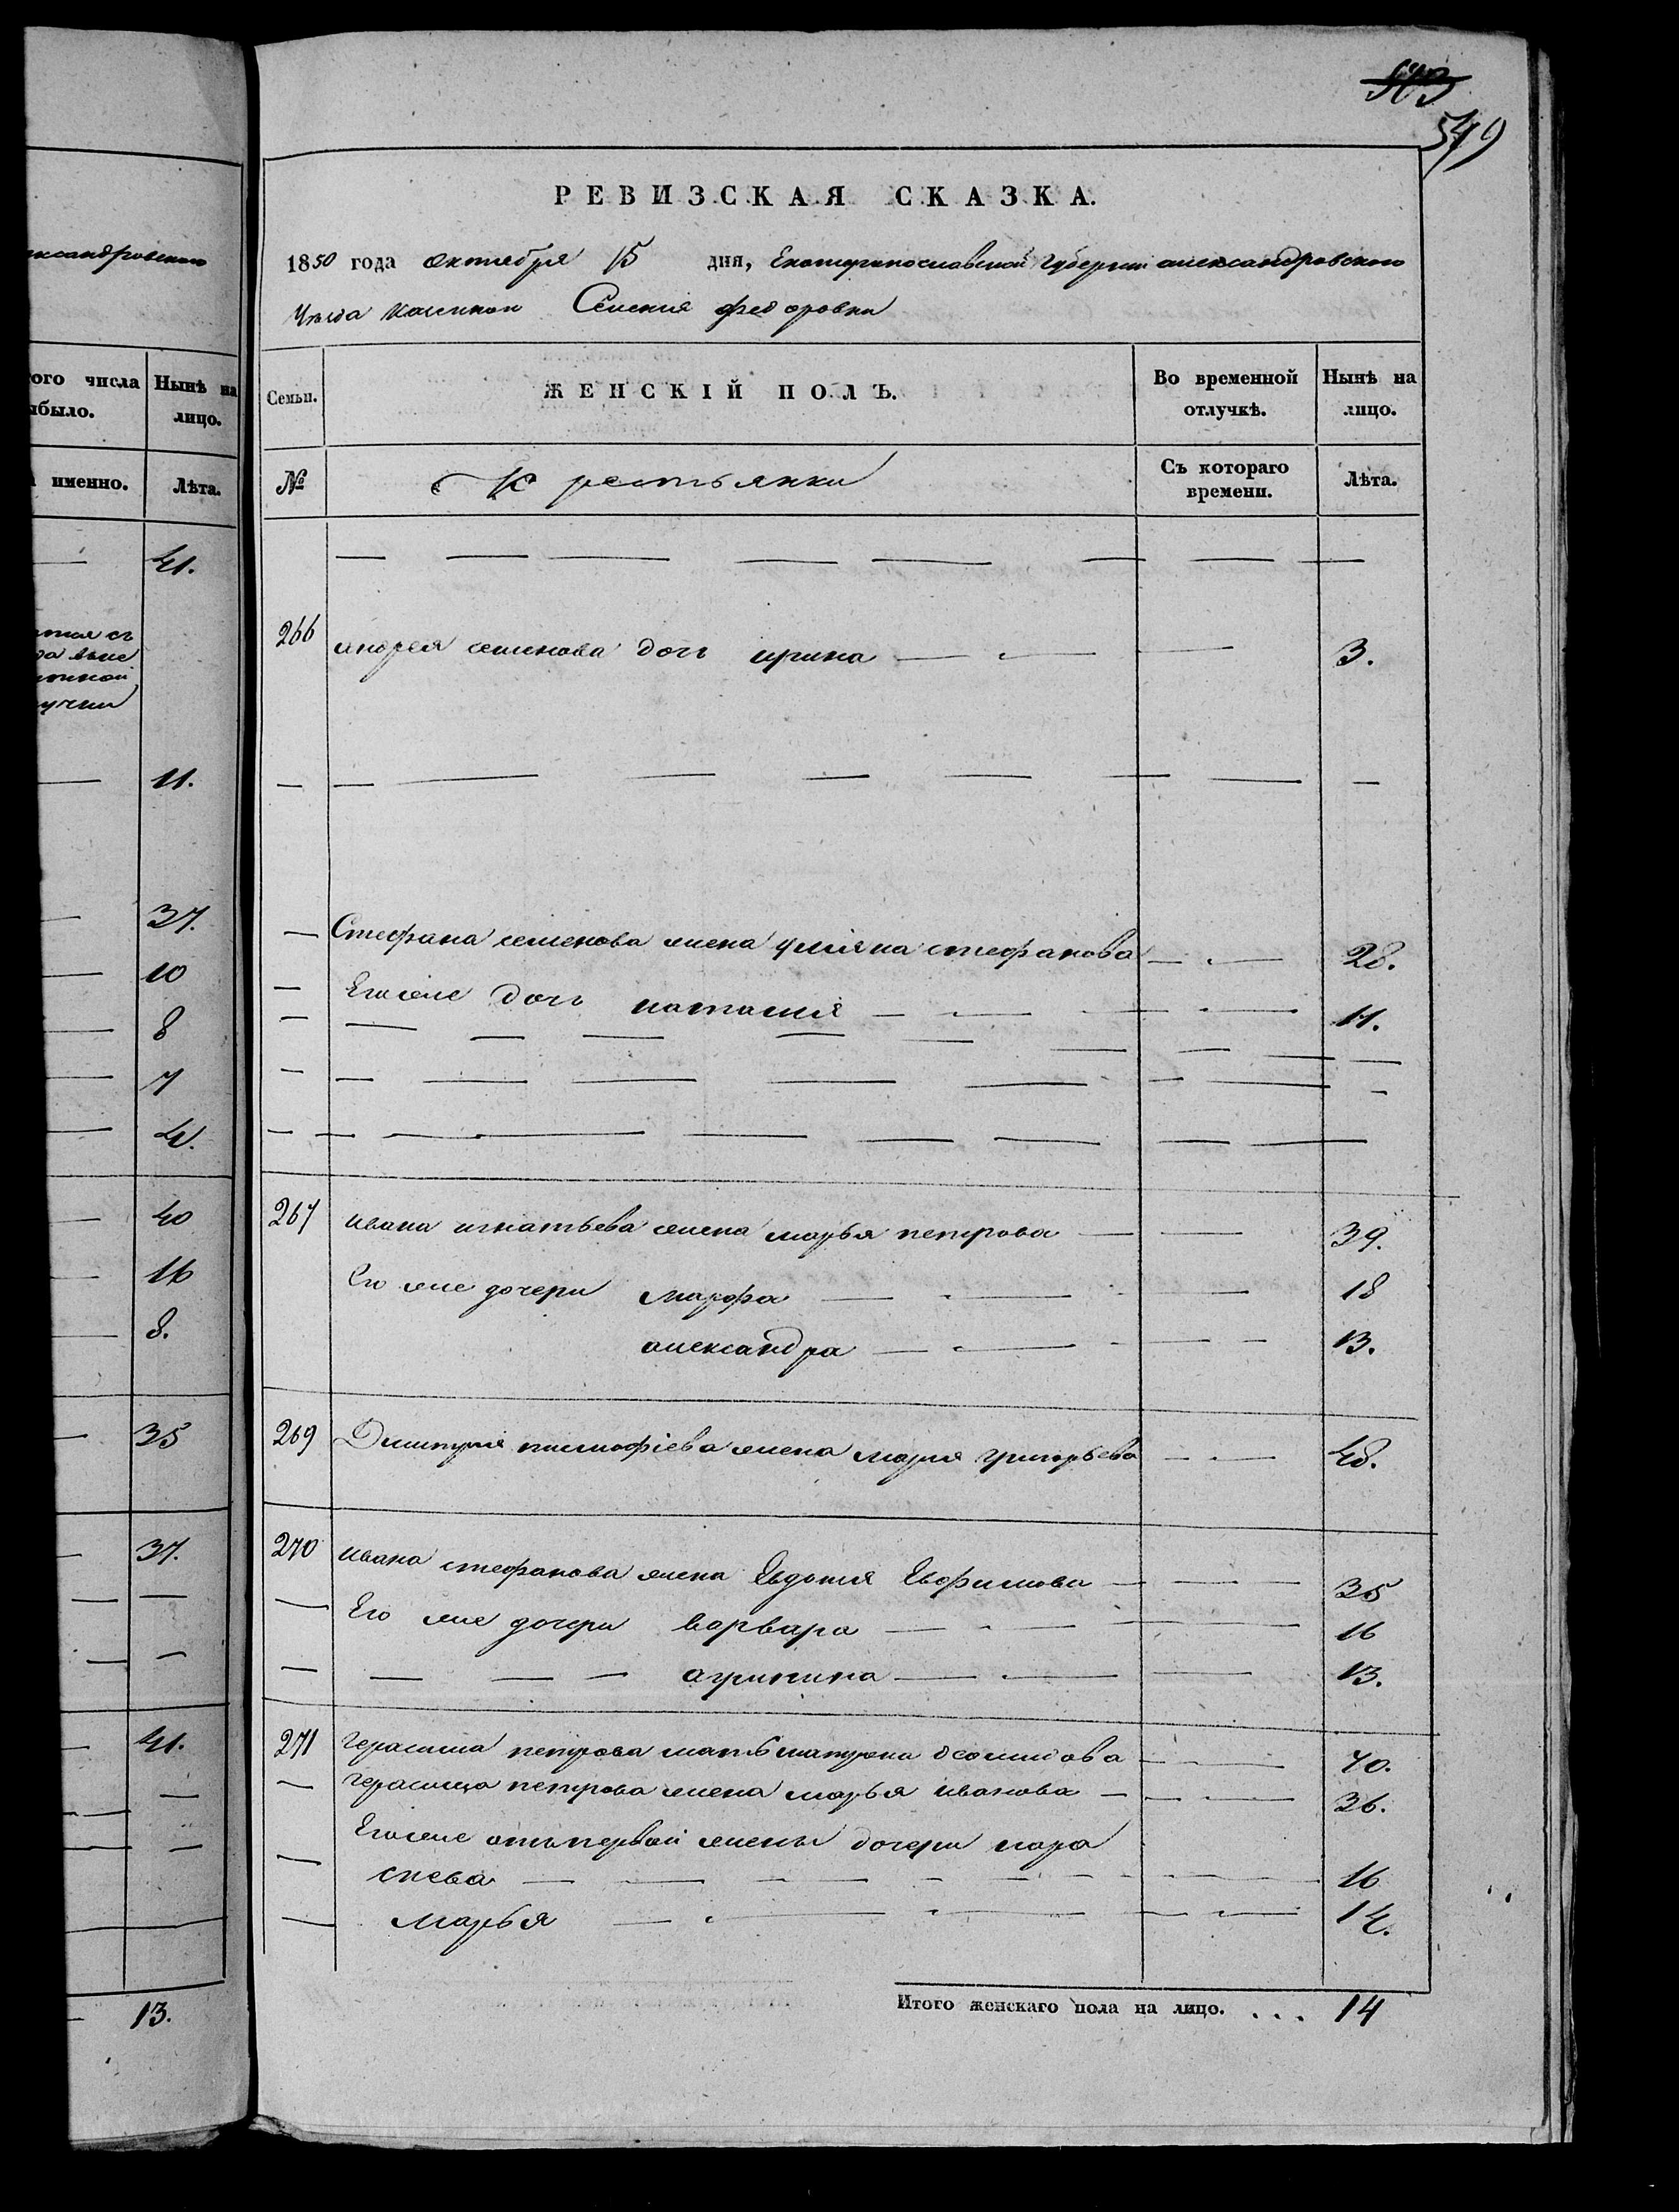 549
РЕВИЗСКАЯ СКАЗКА.
1850 года октября 15 дня, Екатеринославской Губернии александровского
Уезда казенного Селения федоровки
того числа
Нынѣ на лицо.
Семьи.
ЖЕНСКІЙ ПОЛЪ.
Во временной отлучкѣ.
Нынѣ на лицо.
именно.
Лѣта.
№
Крестьянки
Съ котораго времени.
Лѣта.
41.
11.
37.
10
8
7
4.
40
16
8.
35
37.
41.
13.
266 андрея семенова дочь ирина 3.
Стефана семенова жена улияна стефанова 28.
Его же дочь наталия 11.
267 ивана игнатьева жена марья петрова 39.
Его же дочери марфа 18
александра 13.
269 Димитрия тимофіева жена мария григорьева 48.
270 ивана стефанова жена Евдокия Евфимова 35
Его же дочери варвара 16
агрипина 13.
271 герасима петрова мать матрона 70.
герасима петрова жена марья иванова 36.
Его же отъ первой жены дочери пара
скева 16
марья 14.
Итого женскаго пола на лицо. . . . 14